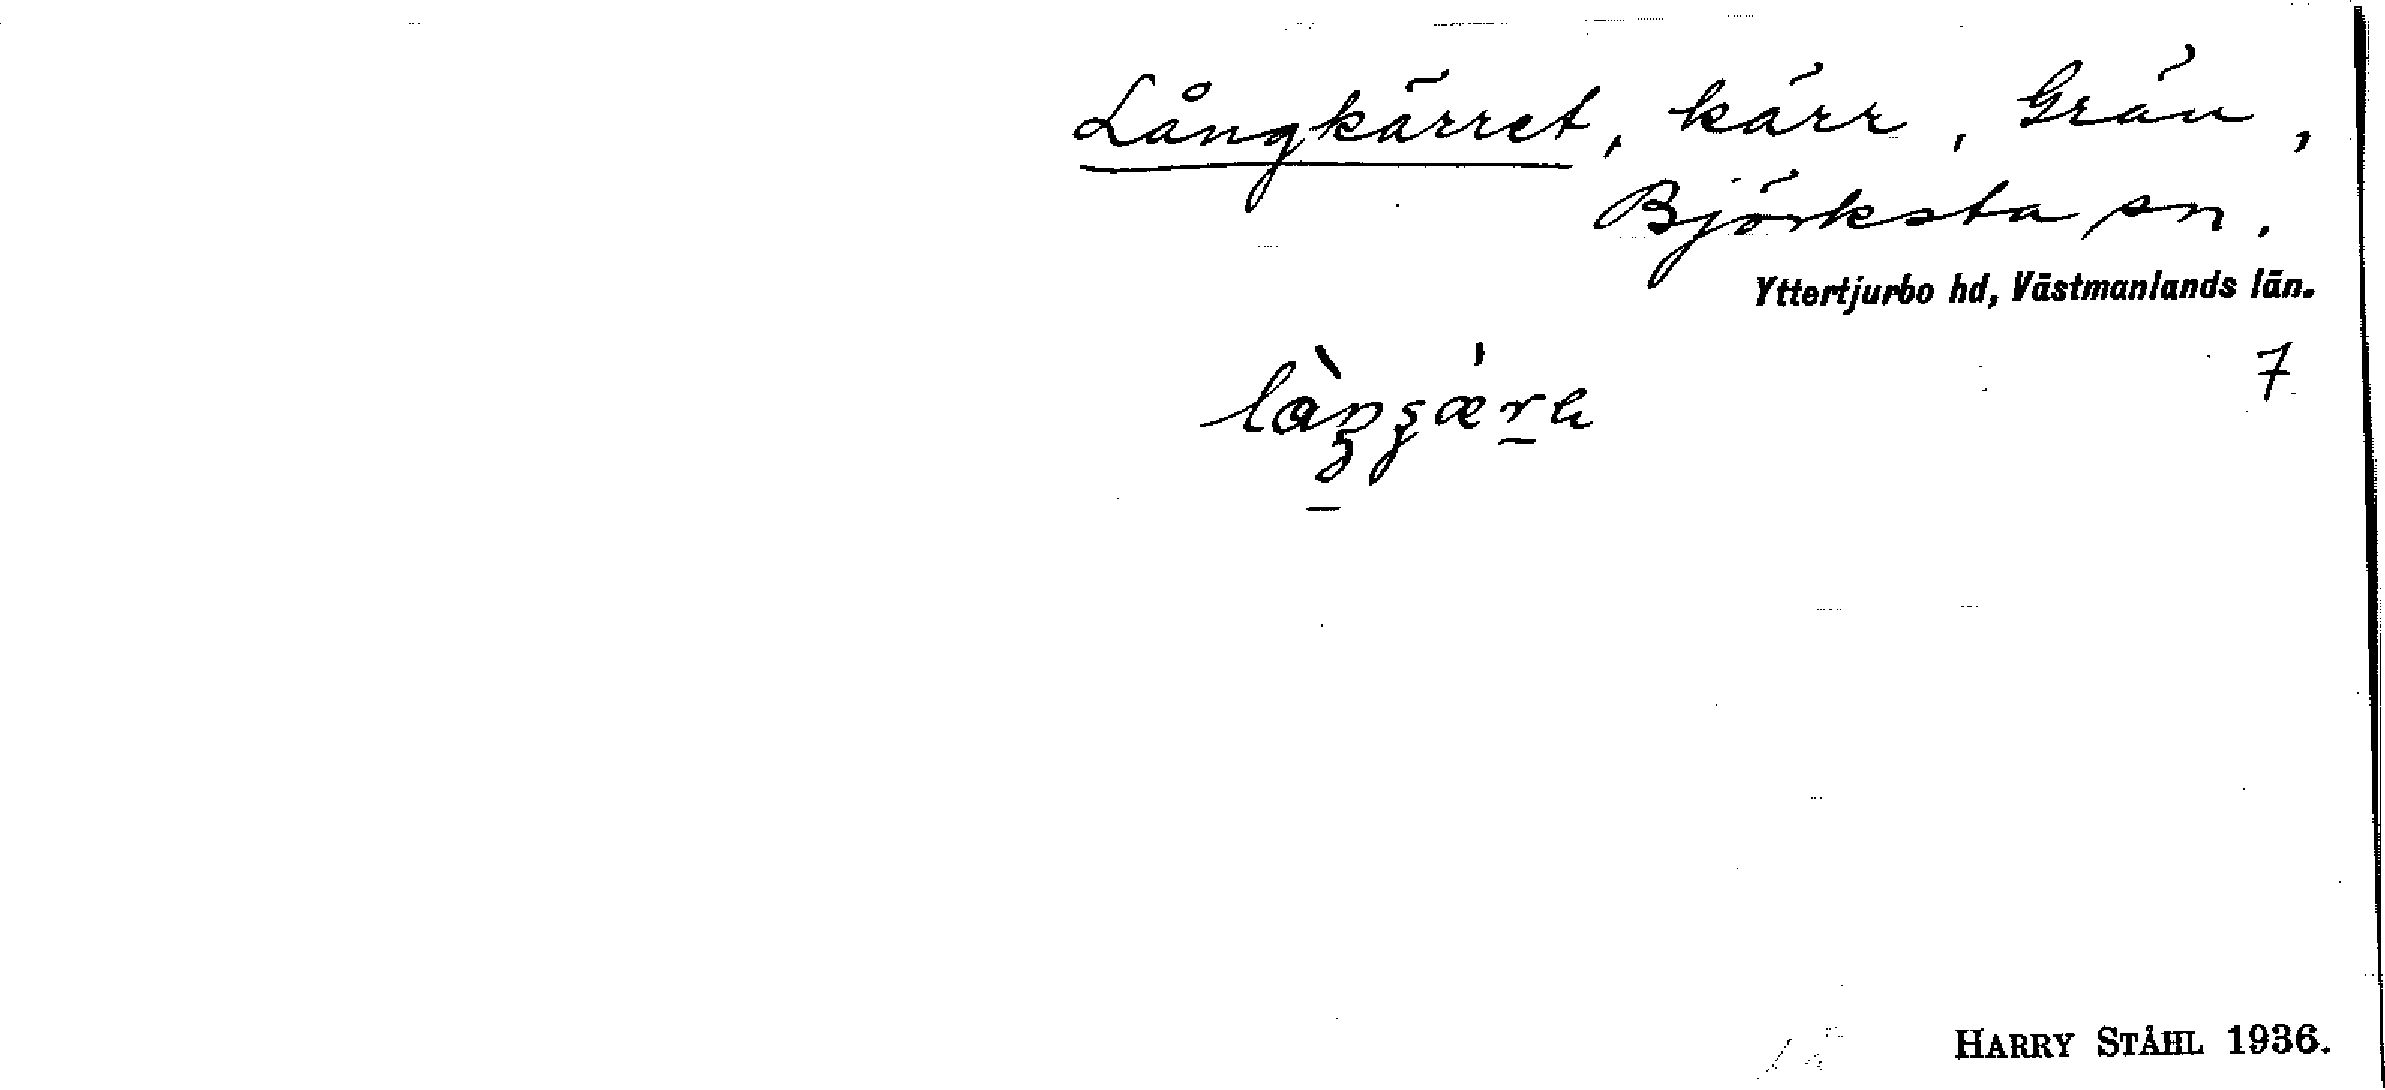 Långkärret, kärr, Grän,
Björksta sn.
Yttertjurbo hd, Västmanlands län.
7
HARRY STÅHL 1936.